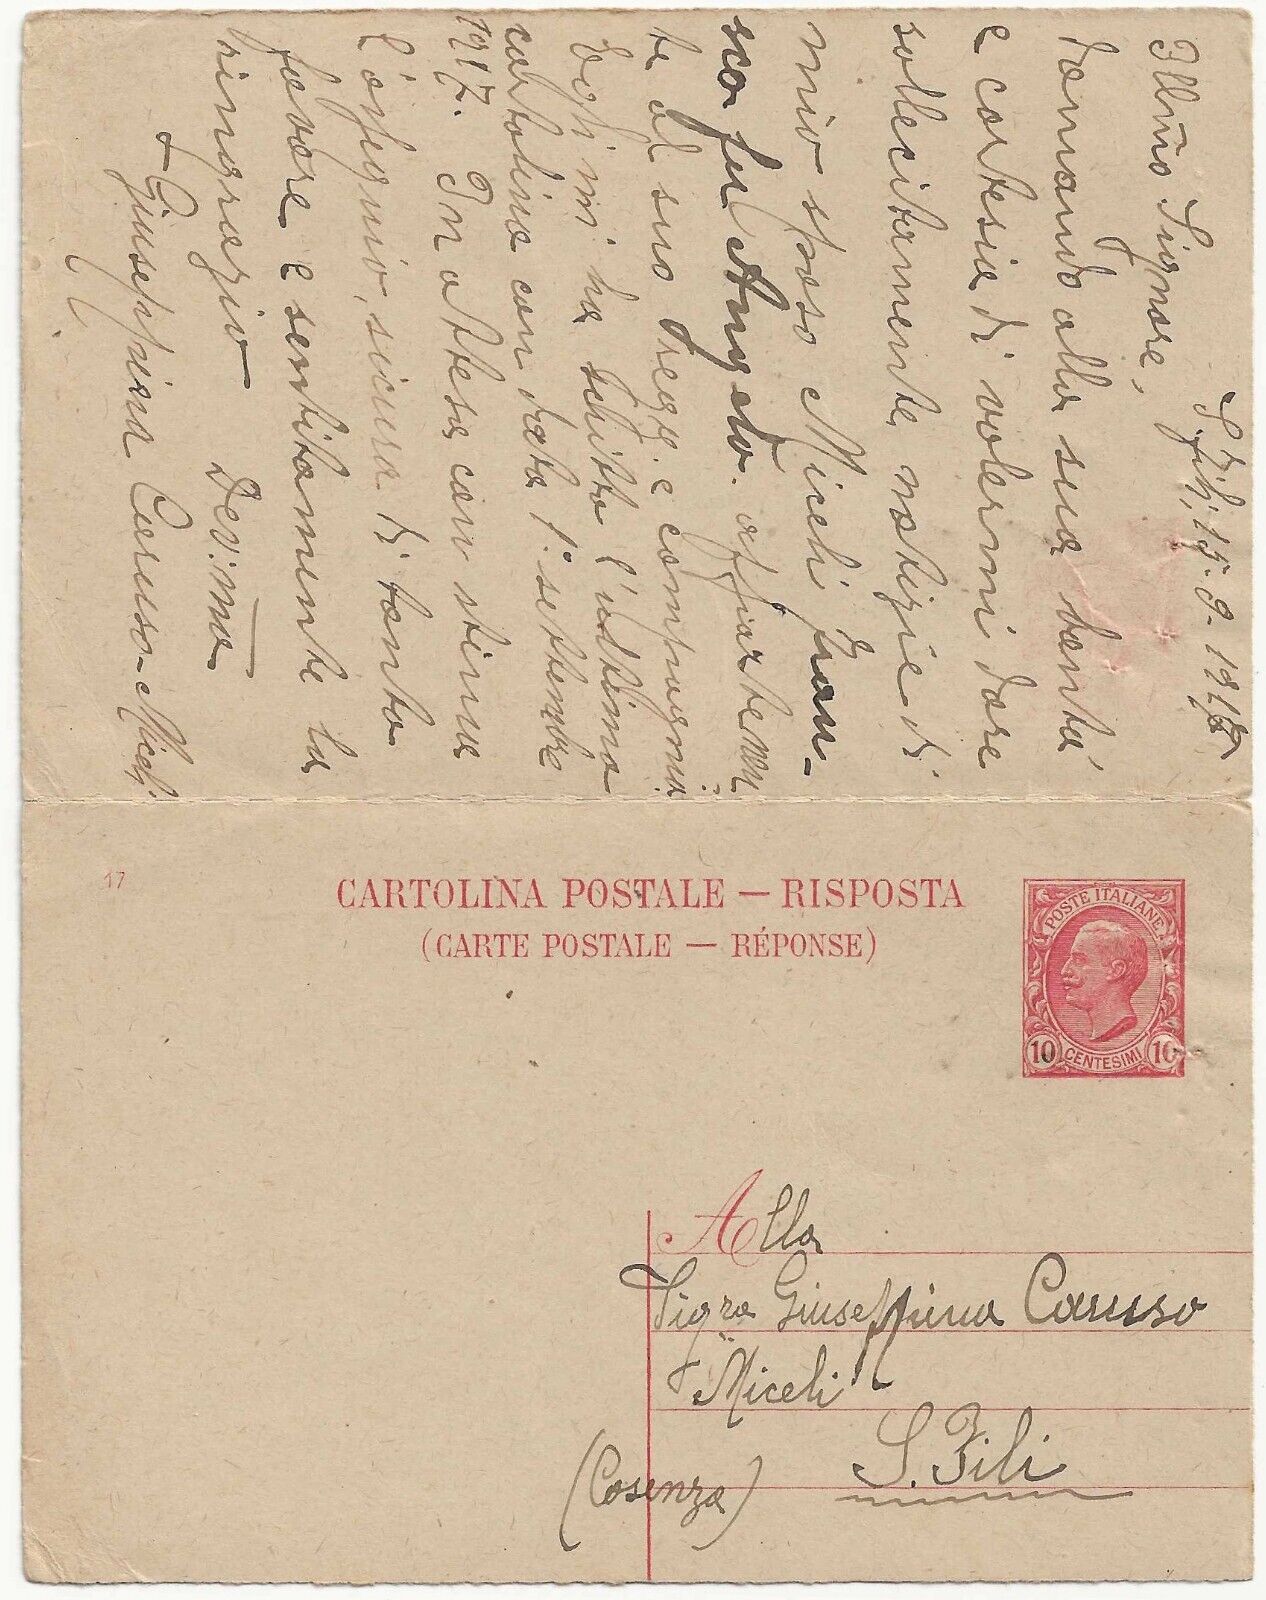 S. Fili, 15-9-1917
Ill.mo Signore,
domando alla sua bontà
e cortesia di volermi dare
sollecitamente notizie di
mio sposo Miceli Fran-
sco fu Angelo. appartenen
te al suo Regg. e compagnia.
Egli mi ha scritto l'ultima
cartolina con data 1° settembre
1917. In attesa con stima
L'ossequio, sicura di tanto
favore e sentitamente la
ringrazio
Dev.ma
+ Giuseppina Caruso-Miceli
17
CARTOLINA POSTALE — RISPOSTA
(CARTE POSTALE — RÉPONSE)
POSTE ITALIANE
10 CENTESIMI 10
Alla
Sigra Giuseppina Caruso
Miceli
S. Fili
(Cosenza)